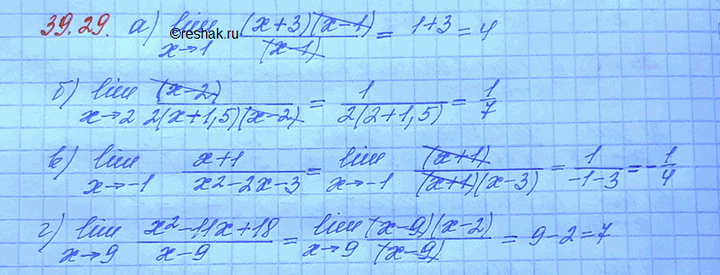 39.29. а) lim x→1 (x+3)(x-1)/(x-1) = 1+3 = 4
©reshak.ru
б) lim x→2 (x-2)/2(x+1,5)(x-2) = 1/2(2+1,5) = 1/7
в) lim x→-1 x+1/x²-2x-3 = lim x→-1 (x+1)/(x+1)(x-3) = 1/-1-3 = -1/4
г) lim x→9 x²-11x+18/x-9 = lim x→9 (x-9)(x-2)/(x-9) = 9-2=7